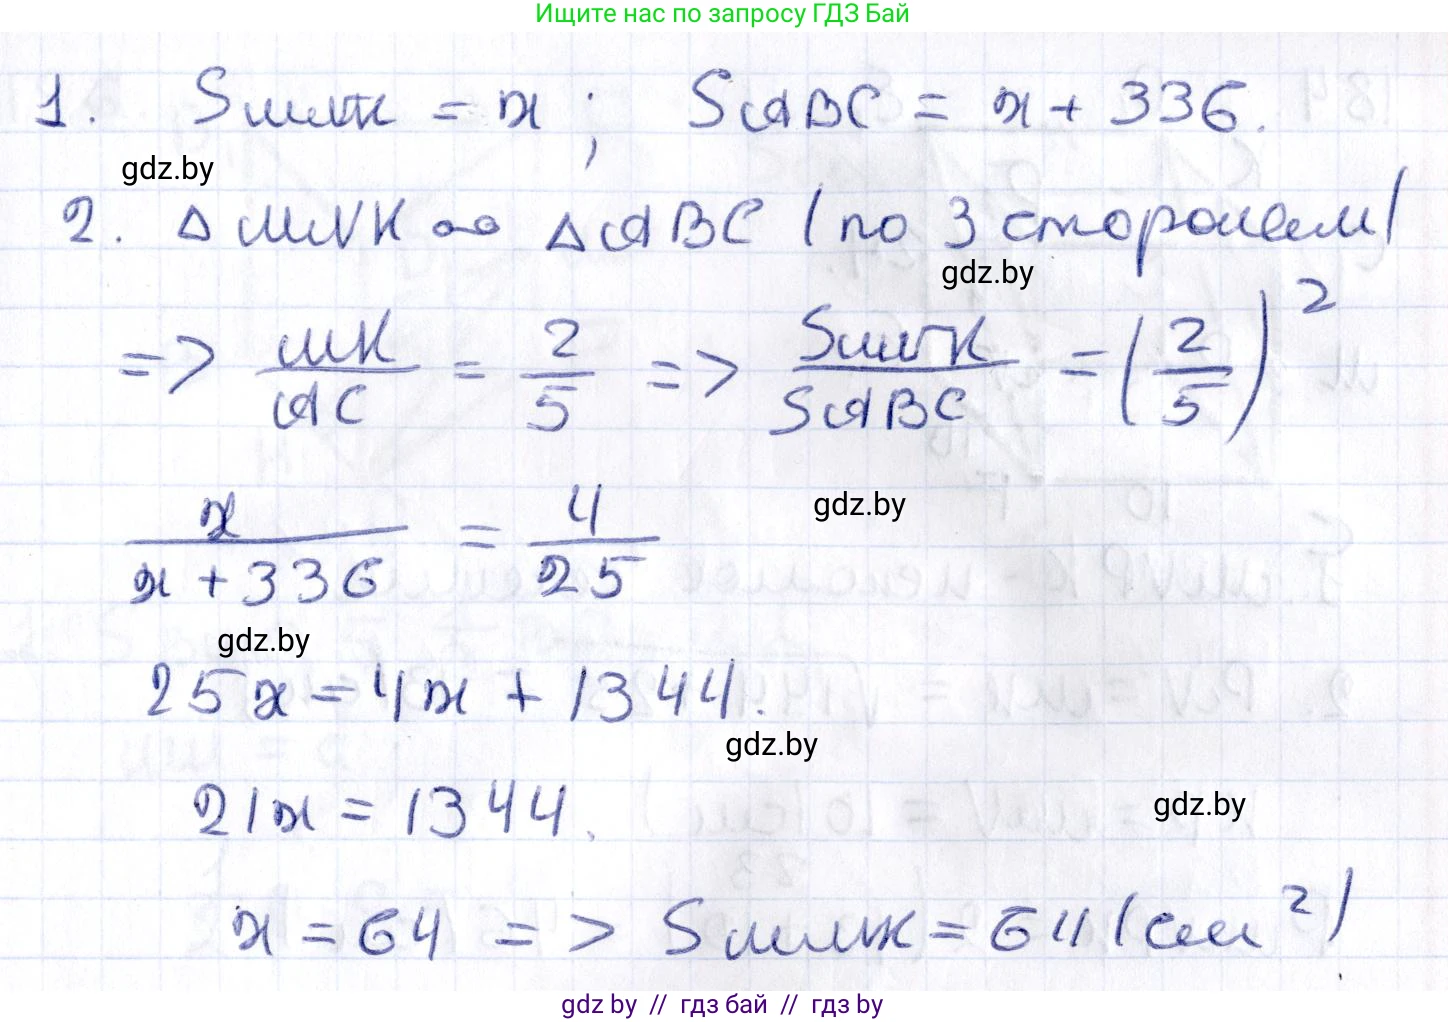 Ищите нас по запросу ГДЗ Бай
1. SMNK = x ; SABC = x + 336.
gdz.by
2. △MNK ∾ △ABC (по 3 сторонам)
gdz.by
=> MK/AC = 2/5 => SMNK/SABC = (2/5)²
x/(x + 336) = 4/25
gdz.by
gdz.by
25x = 4x + 1344.
gdz.by
21x = 1344.
gdz.by
x = 64 => SMNK = 64 (см²)
gdz.by // гдз бай // гдз by